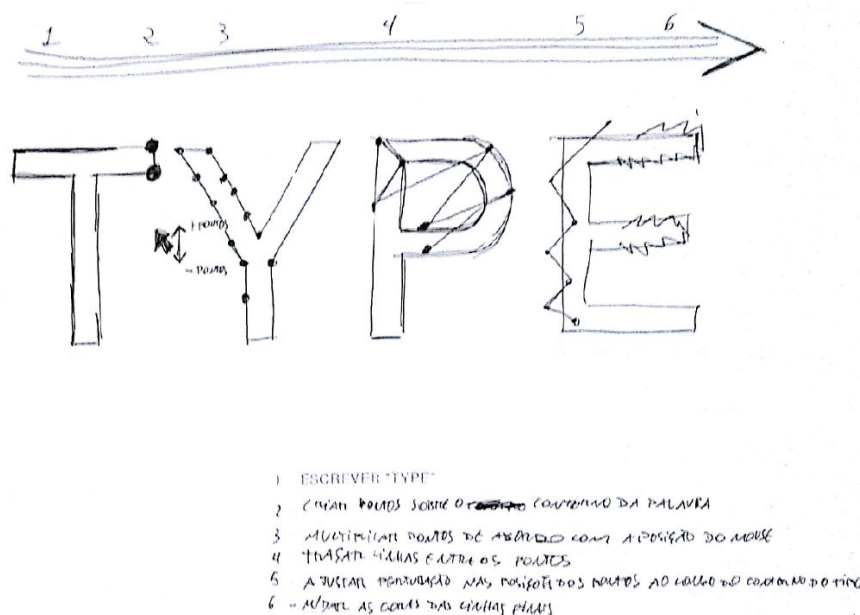 1 2 3 4 5 6
TYPE
+ PONTOS
- PONTOS
1 ESCREVER "TYPE"
2 CRIAR PONTOS SOBRE O CONTORNO DA PALAVRA
3 MULTIPLICAR PONTOS DE ACORDO COM A POSIÇÃO DO MOUSE
4 TRAÇAR LINHAS ENTRE OS PONTOS
5 AJUSTAR PERTURBAÇÃO NAS POSIÇÕES DOS PONTOS AO LONGO DO CONTORNO DO TIPO
6 - MUDAR AS CORES DAS LINHAS FINAIS